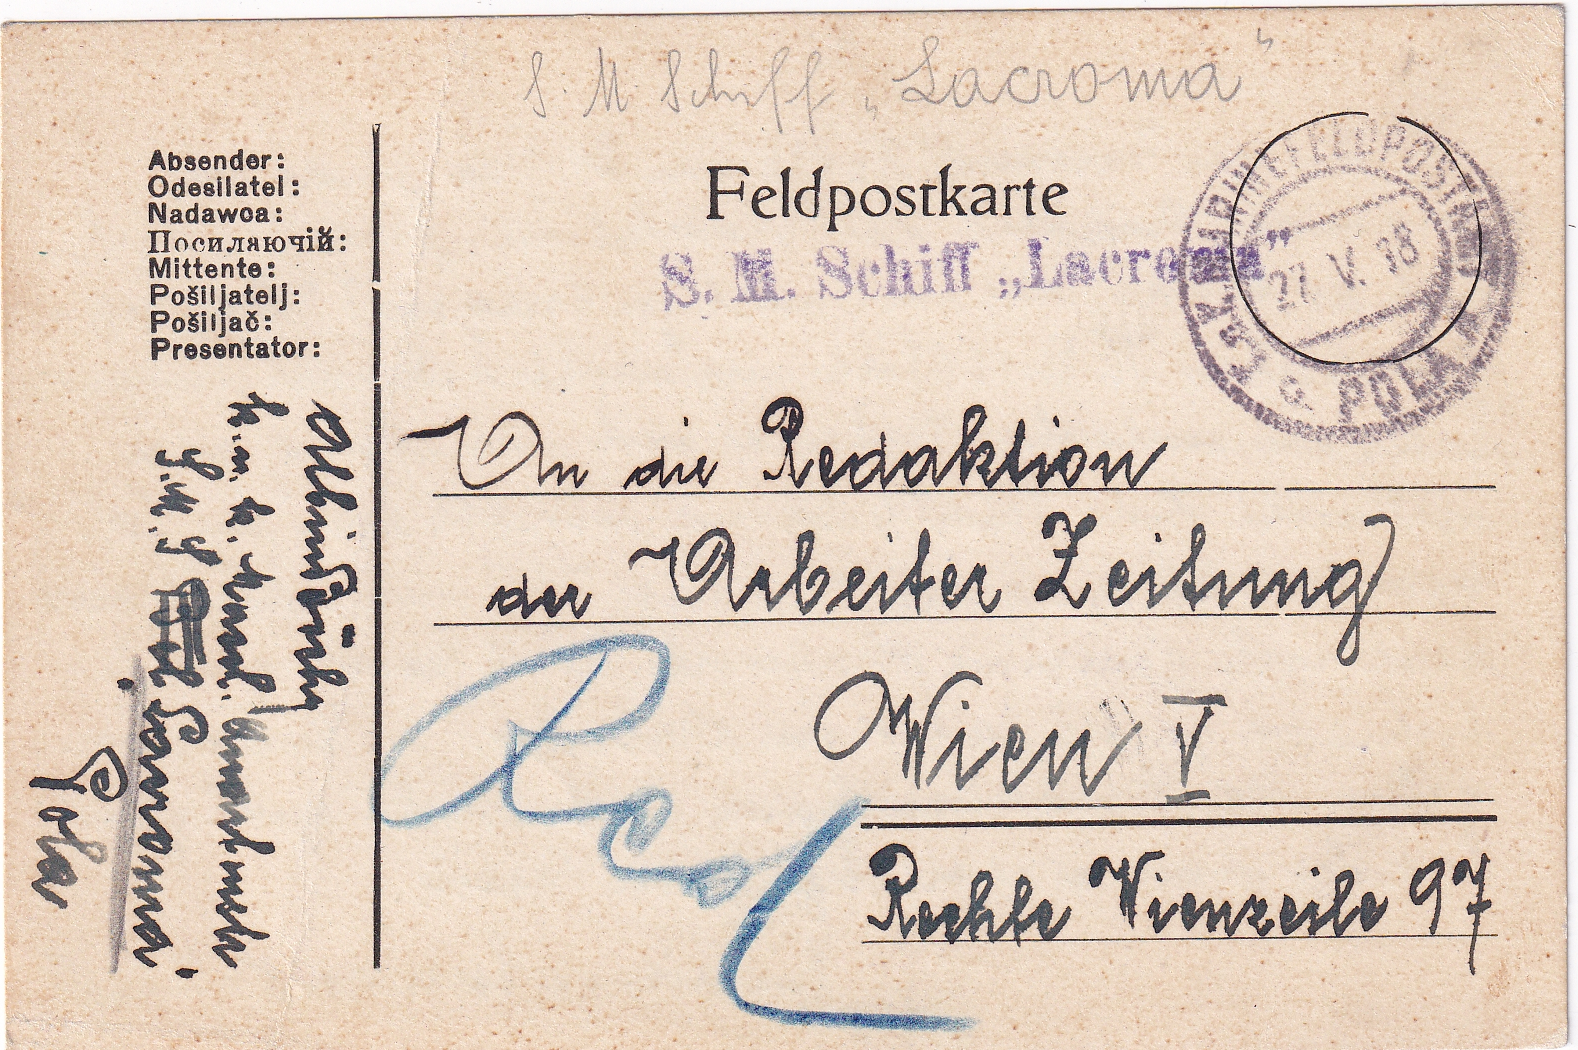 S. M. Schiff „Lacroma"
Feldpostkarte
S. M. Schiff „Lacroma”
K.U.K. MARINEFELDPOSTAMT
27. V. 18
POLA
Absender:
Odesílatel:
Nadawca:
Посилаючій:
Mittente:
Pošiljatelj:
Pošiljač:
Presentator:
Albin
S. M. S.
Lacroma
Pola
An die Redaktion
der Arbeiter Zeitung
Wien V
Rechte Wienzeile 97